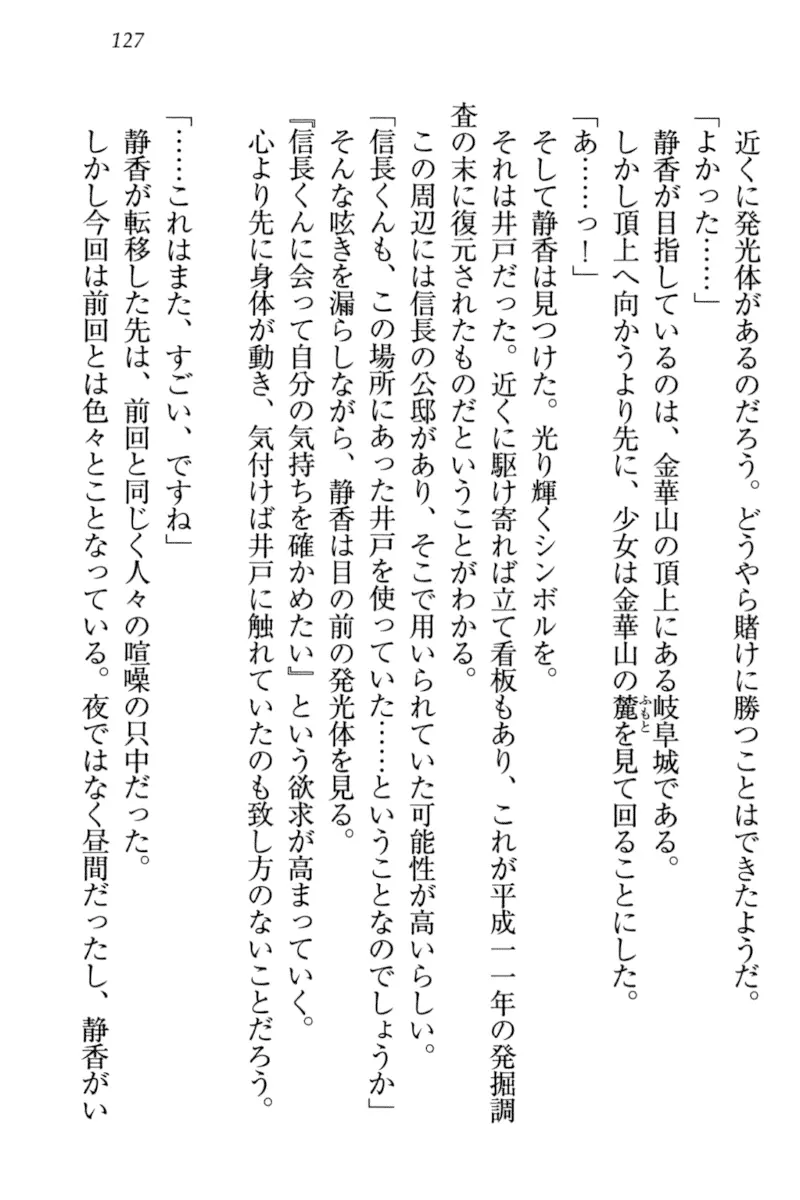 127
近くに発光体があるのだろう。どうやら賭けに勝つことはできたようだ。
「よかった……」
静香が目指しているのは、金華山の頂上にある岐阜城である。
しかし頂上へ向かうより先に、少女は金華山の麓を見て回ることにした。
ふもと
「あ……っ！」
そして静香は見つけた。光り輝くシンボルを。
それは井戸だった。近くに駆け寄れば立て看板もあり、これが平成一一年の発掘調
査の末に復元されたものだということがわかる。
この周辺には信長の公邸があり、そこで用いられていた可能性が高いらしい。
「信長くんも、この場所にあった井戸を使っていた……ということなのでしょうか」
そんな呟きを漏らしながら、静香は目の前の発光体を見る。
『信長くんに会って自分の気持ちを確かめたい』という欲求が高まっていく。
心より先に身体が動き、気付けば井戸に触れていたのも致し方のないことだろう。
「……これはまた、すごい、ですね」
静香が転移した先は、前回と同じく人々の喧噪の只中だった。
しかし今回は前回とは色々とことなっている。夜ではなく昼間だったし、静香がい